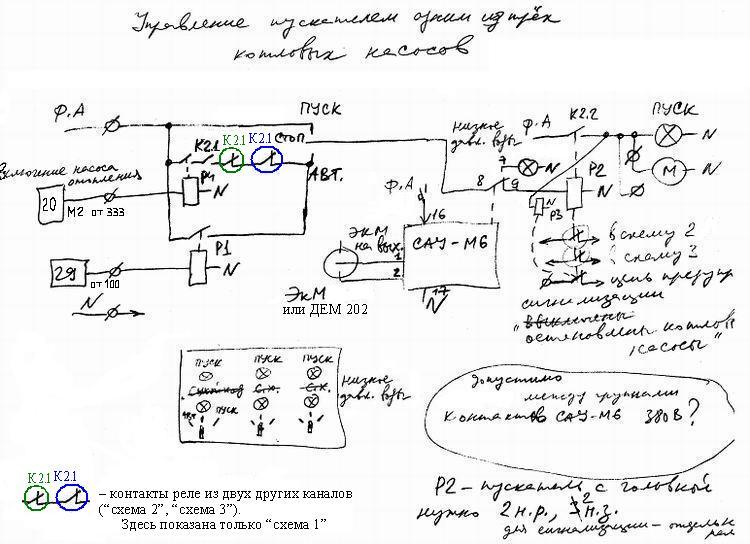 Управление пускателем одним из трёх
котловых насосов
Ф.А
ПУСК
К2.1
К2.1
К2.1
СТОП
АВТ.
Включение насоса
отопления
20
М2 от 333
Р4
N
Р1
29
от 100
N
N
ЭКМ
или ДЕМ 202
Низкое
давл. воды
Ф.А
К2.2
ПУСК
N
7
N
8
9
Р2
N
М
N
N
Р3
Ф.А
16
ЭКМ
на вых.
1
2
САУ-М6
17
N
в схему 2
в схему 3
цепь предупр
сигнализации
"выключены
остановлены котлов
насосы"
ПУСК
ПУСК
ПУСК
С.х.
С.х.
АВТ
ПУСК
Низкое
давл. воды
допустимо
между группами
контактов САУ-М6 380В?
К2.1 К2.1
– контакты реле из двух других каналов
("схема 2", "схема 3").
Здесь показана только "схема 1"
Р2 – пускатель с головкой
нужно 2 н.р., 2 н.з.
для сигнализации – отдельн
рел